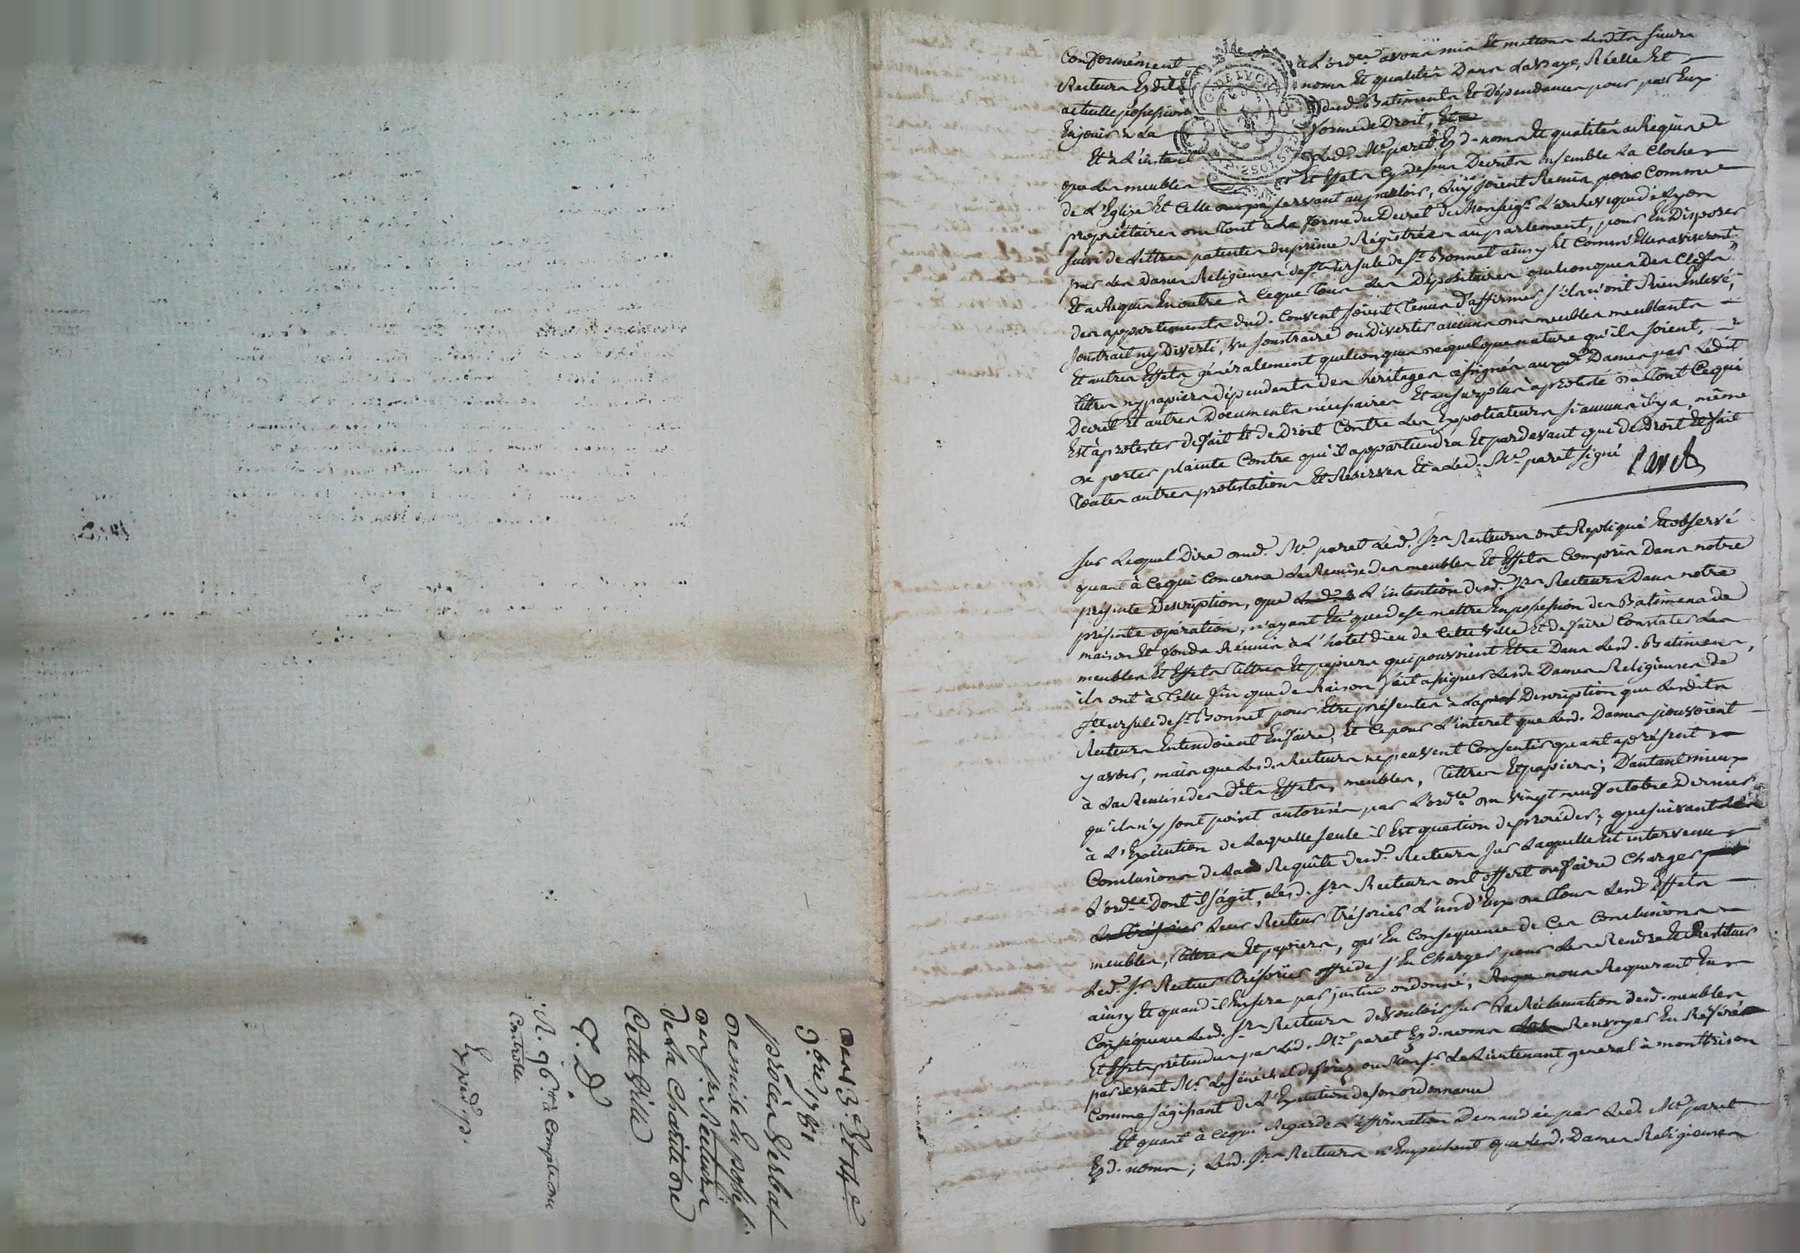 Conformément à L'ordce avons mis Et mettons Lesdits sieurs
Recteurs Esdits noms Et qualités Dans La vraye, Réelle Et
actuelle possession dud. Batiments Et dépendances pour par Eux
En jouir & La forme de Droit,
Et à L'instant Led. Me paret Esd. noms Et qualités a Requis
que Les meubles Et Effets Cy dessus Decrits ensemble La Cloche
de L'Eglise Et Celle servant au parloir, Luy soient Remis Comme
propriétaires du tout a La forme du Decret de Monseigr L'archevêque de Lyon
suivi de Lettres patentes duprime Régistrées au parlement, pour En Disposer
par Les Dames Religieuses de Ste Ursule de St Bonnet ainsy Et Comm'Elles aviseront
Et a Requis En outre à Ceque tous Les Dépositaires quelconques Des Clefs
des appartements dud. Couvent soient tenus D'affirmer s'ils n'ont Rien Enlevé,
soustrait ny Diverti, vu soustraire ou Divertir aucuns meubles meublants
Et autres Effets généralement quelconques de quelque nature qu'ils soient,
titres ny papiers dépendants des héritages assignés auxd. Dames par Ledit
Decret Et autres Documents nécessaires Et au surplus a protesté de tout Cequi
Est à protester de fait Et de Droit Contre Les Expoliateurs si aucuns il y a, même
de porter plainte Contre qui il appartiendra Et pardevant qui de Droit Et fait
toutes autres protestations Et Réserves Et a Led. Me paret signé Paret
Sur Lequel Dire dud. Me paret Lesd. Srs Recteurs ont Repliqué Et observé
quant à Cequi Concerne La Remise des meubles Et Effets Compris Dans notre
présente Description, que L'intention desd. Srs Recteurs Dans notre
présente opération, n'ayant Eté que de se mettre En possession des Batimens de
maison Et fonds Réunis à L'hotel Dieu de Cette ville Et de faire Constater Les
meubles Et Effets titres Et papiers qui pouvoient Etre Dans Lesd. Batimens,
ils ont à telle fin que de Raison fait assigner Lesd. Dames Religieuses de
Ste ursule de St Bonnet pour Etre présentes à La Description que Lesdits
Recteurs Entendoient En faire, Et Ce pour L'interet que Lesd. Dames pouvoient
y avoir, mais que Lesd. Recteurs ne peuvent Consentir quant à présent
à La Remise des dits Effets, meubles, tittres Et papiers; D'autant mieux
qu'ils n'y sont point autorisés par L'ordce du vingt neuf octobre Dernier
à L'Exécution de Laquelle seule il Est question de procéder; que suivant Les
Conclusions de La Requête desd. Recteurs sur Laquelle Est intervenue
L'ordce Dont il s'agit, Lesd. Srs Recteurs ont offert de faire Charger
Leur Recteur trésorier L'un d'Eux de tous Lesd. Effets
meubles, titres Et papiers, qu'En Consequence de Ces Conclusions
Led. Sr Recteur trésorier offre de s'En Charger pour Les Rendre Et Restituer
ainsy Et quand il En sera par justice ordonné, nous Requerant En
Conséquence Lesd. Srs Recteurs de vouloir sur La Réclamation desd. meubles
Et Effets prétendus par Led. Me paret Esd. noms Renvoyer En Référé
pardevant Mr Le Sénéchal de forez ou Monsr Le Lieutenant general à montbrison
Comme s'agissant de L'Execution de son ordonnance
Et quant à Cequi Regarde L'affirmation Demandée par Led. Me paret
Esd. noms; Lesd. Srs Recteurs n'Empechent que Lesd. Dames Religieuses
Des 13e Et 14e
9bre 1781
procès Verbal
de mise En possess.
des srs Recteurs
de La Charité de
Cette Ville
N. 96. à Compter du
Controlle
Expédié.